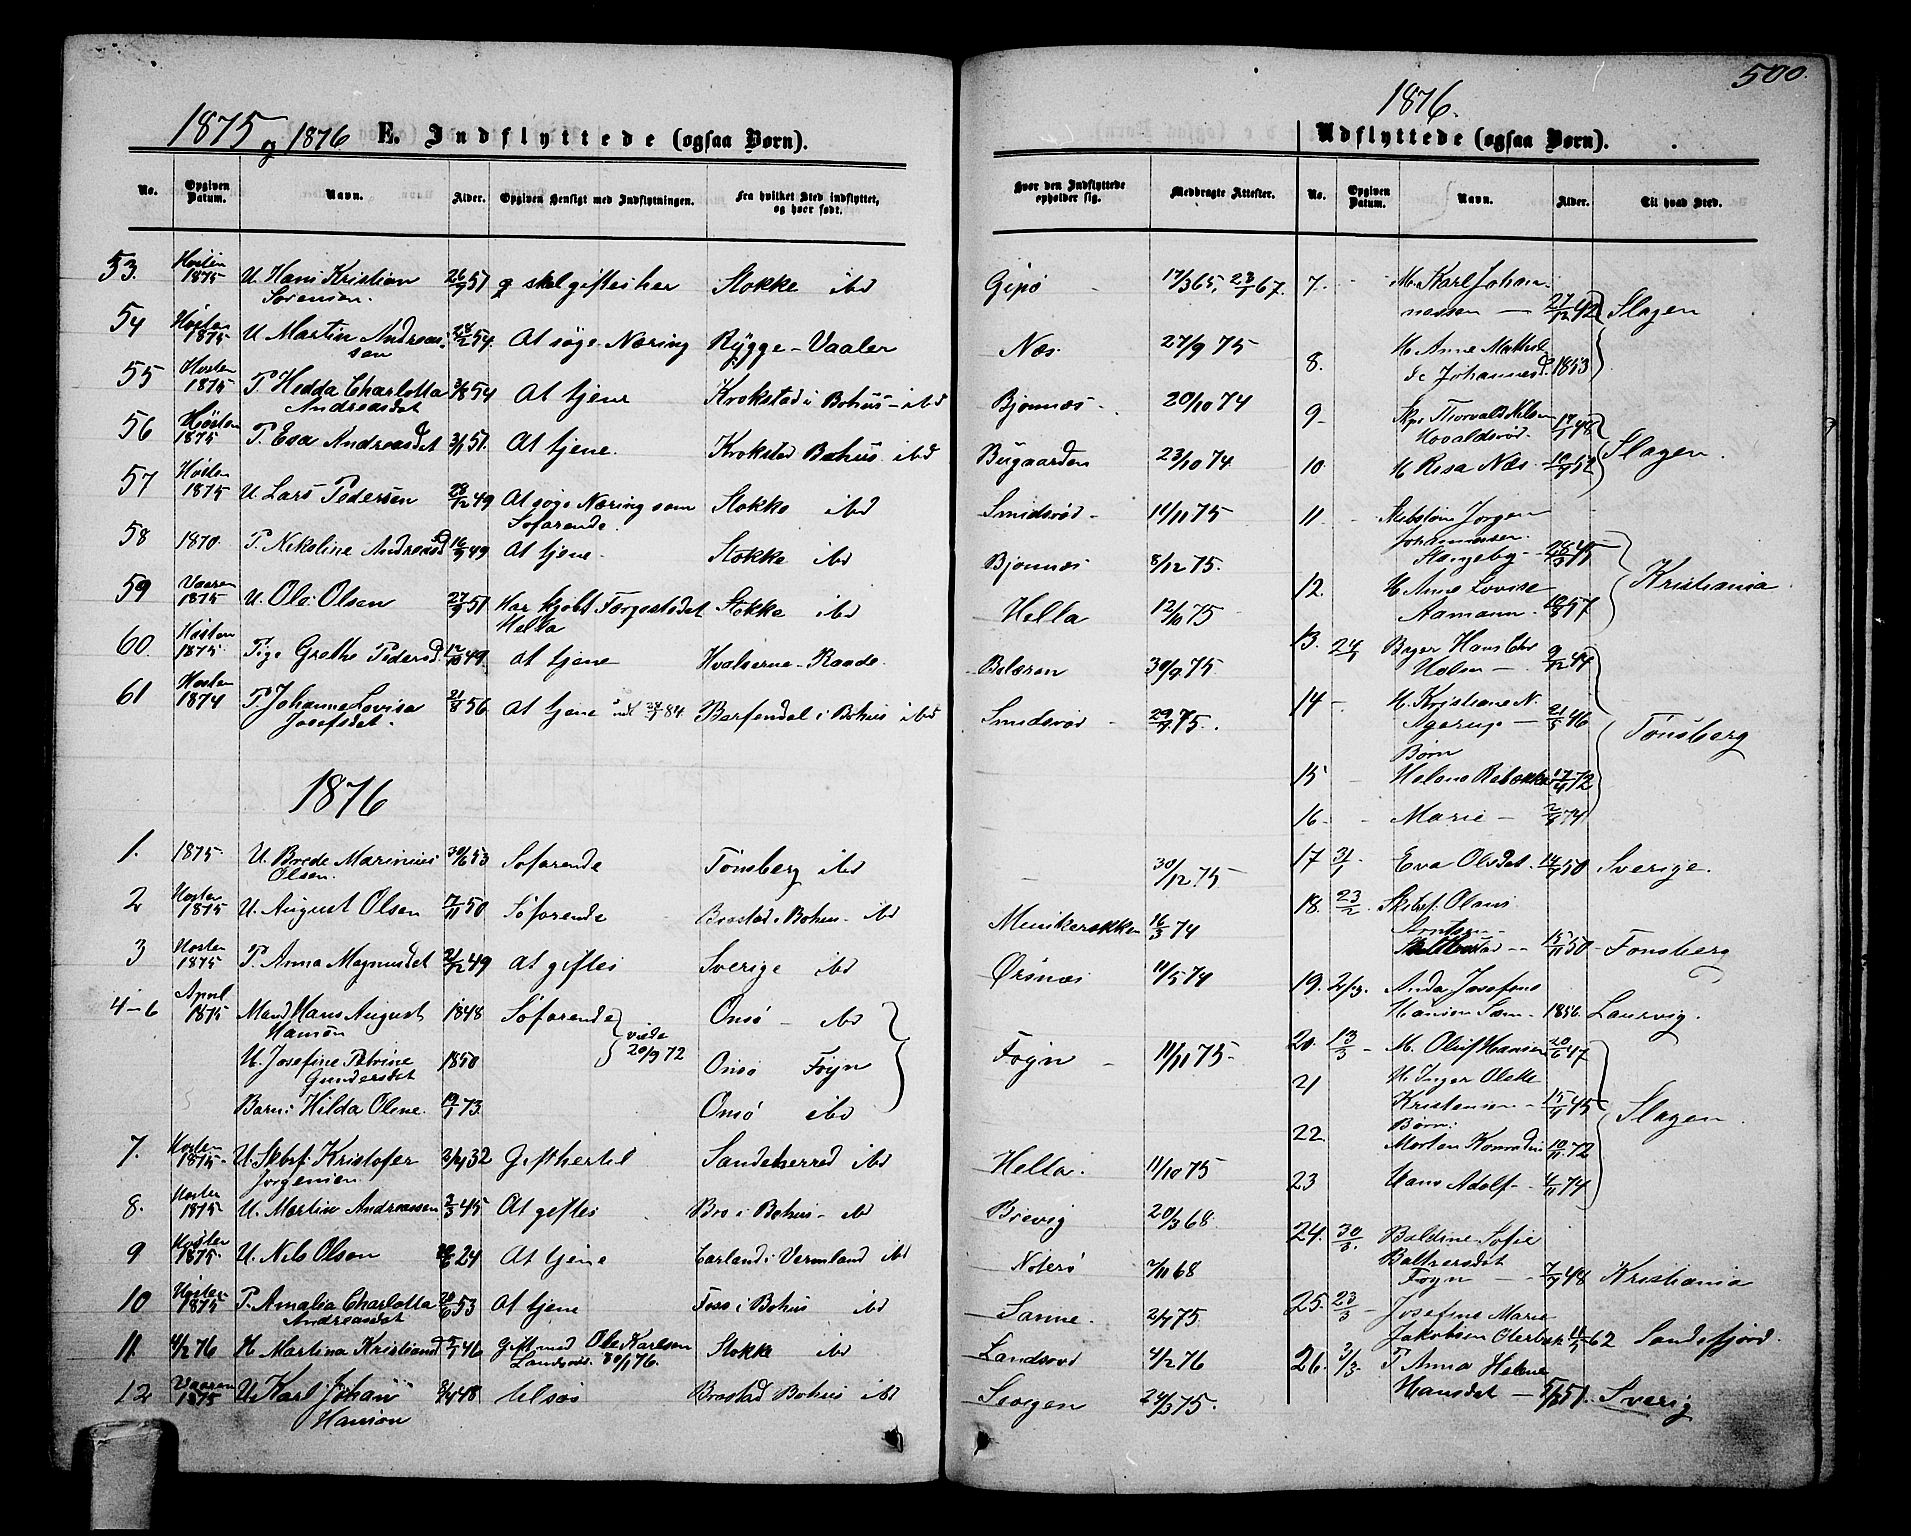 500.
1875 og 1876 E. Indflyttede (ogsaa Børn).
No. Opgiven Datum. Navn. Alder. Opgiven Hensigt med Indflytningen. Fra hvilket Sted indflyttet, og hvor født.
53. Høsten 1875 U. Hans Kristian Sørensen. 26/9 51 skal giftes her Stokke ibd
54 Høsten 1875 U. Martin Andreassen 28/2 54. At søge Næring Rygge - Vaaler
55 Høsten 1875 P. Hedda Charlotta Andreasdat 3/8 54 At tjene Krokstad i Bohus - ibd
56 Høsten 1875 P. Eva Andreasdat 3/11 51. At tjene. Krokstad Bohus. ibd
57 Høsten 1875 U. Lars Pedersen 28/12 49 At søge Næring som Søfarende Stokke ibd
58 1870. P. Nikoline Andreasd 16/9 49 At tjene. Stokke ibd
59 Vaaren 1875 U. Ole Olsen 27/9 51 Har kjøbt Færgestedet Hella Stokke ibd
60. Høsten 1875. Pige Grethe Pedersd. 49. At tjene Hvalerne - Raade.
61 Høsten 1874 P. Johanne Lovisa Josefsdat. 21/8 56 At tjene Barfendal i Bohus ibd
1876
1. 1875. U. Brede Marinius Olsen. 30/6 53 Søfarende Tønsberg ibd
2 Høsten 1875 U. August Olsen 7/11 50 Søfarende Brastad i Bohus. ibd
3 Høsten 1875 P. Anna Magnusdat 21/12 49 At giftes Sverige ibd
4-6 April 1875 Mand Hans August Hansen 1848 Søfarende Onsø - ibd
viede 20/9 72
H. Josefine Petrine Gundersdat 1850 Onsø Føyn
Barn: Hilda Oline. 19/1 73. Onsø ibd
7. Høsten 1875. U. Skbsf. Kristofer Jørgensen. 32 Gift hertil Sandeherred ibd
8. Høsten 1875 U. Martin Andreassen 3/3 45 At giftes Bro i Bohus - ibd
9 Høsten 1875. U. Nils Olsen 24 At tjene i Vermland ibd
10 Høsten 1875 P. Amalia Charlotta Andreasdat 20/6 53 At tjene Foss i Bohus ibd
11. 4/2 76 H. Martina Kristiansd 46 Gift med Ole Karlsen Landsrød 30/1 76. Stokke ibd
12 Vaaren 1875 U. Karl Johan Hanson 48 tilsøs Brastad Bohus ibd
1876.
Udflyttede (ogsaa Børn).
Hvor den Indflyttede opholder sig. Medbragte Attester. No. Opgiven Datum. Navn. Alder. Til hvad Sted.
Gipø 17/3 65, 23/1 67.
Næs. 27/9 75
Bjønnæs. 20/10 74
Bugaarden 23/10 74
Smidsrød - 11/11 75
Bjønnæs 8/12 75.
Hella 12/10 75
Bolæren 30/9 75
Smidsrød 29/9 75.
30/12 75
Munkerekken 16/3 74
Ørsnæs 11/5 74
Føyn 11/11 75.
Hella. 11/10 75
Brevig 20/3 68.
Nøterø 68
Sanne. 2/7 75
Landsrød 4/2 76
Skogen 24/3 75.
7. M. Karl Johannessen 27/12 42 Slagen
8. H. Anne Mathilde Johannesd. 1853
9 - Skps. Thorvald Nilsen Hovaldsrød 17/7 48 Slagen.
10. H. Risa Næs. 10/9 52
11 Skibstøm. Jørgen Johannessen Stangeby - 28/3 45 Kristiania
12. H. Anne Lovise Aamann. 10/8 57
13. 24/1 Bager Hans Chr Holsen 9/12 44 Tønsberg
14 H. Kristiane N. Agerup 21/5 46
Børn
15 Helene Rebekka 17/4 72
16. Marie - 2/8 74
17 31/1 Eva Olsdat. 14/9 50 Sverige.
18. 23/2 Skibsf. Olaus Arntsen 15/11 50 Tønsberg
19. 2/3. Anda Josefine Hansen Sem 1856. Laurvig.
20. 13/3 M. Oluf Hansen 20/6 47 Slagen.
21 H. Inger Olette Kristensen 15/4 45
Børn:
22. Morten Konradin 10/11 72
23 Hans Adolf 4/11 74
24. 30/3. Boldine Sofie Baltzersdat Føyn 7/9 48 Kristiania
25. 23/3 Josefine Marie Jakobsen Oterbæk 62 Sandefjord.
26. 31/3. P. Anna Helene Hansdat 5/8 51. Sverig